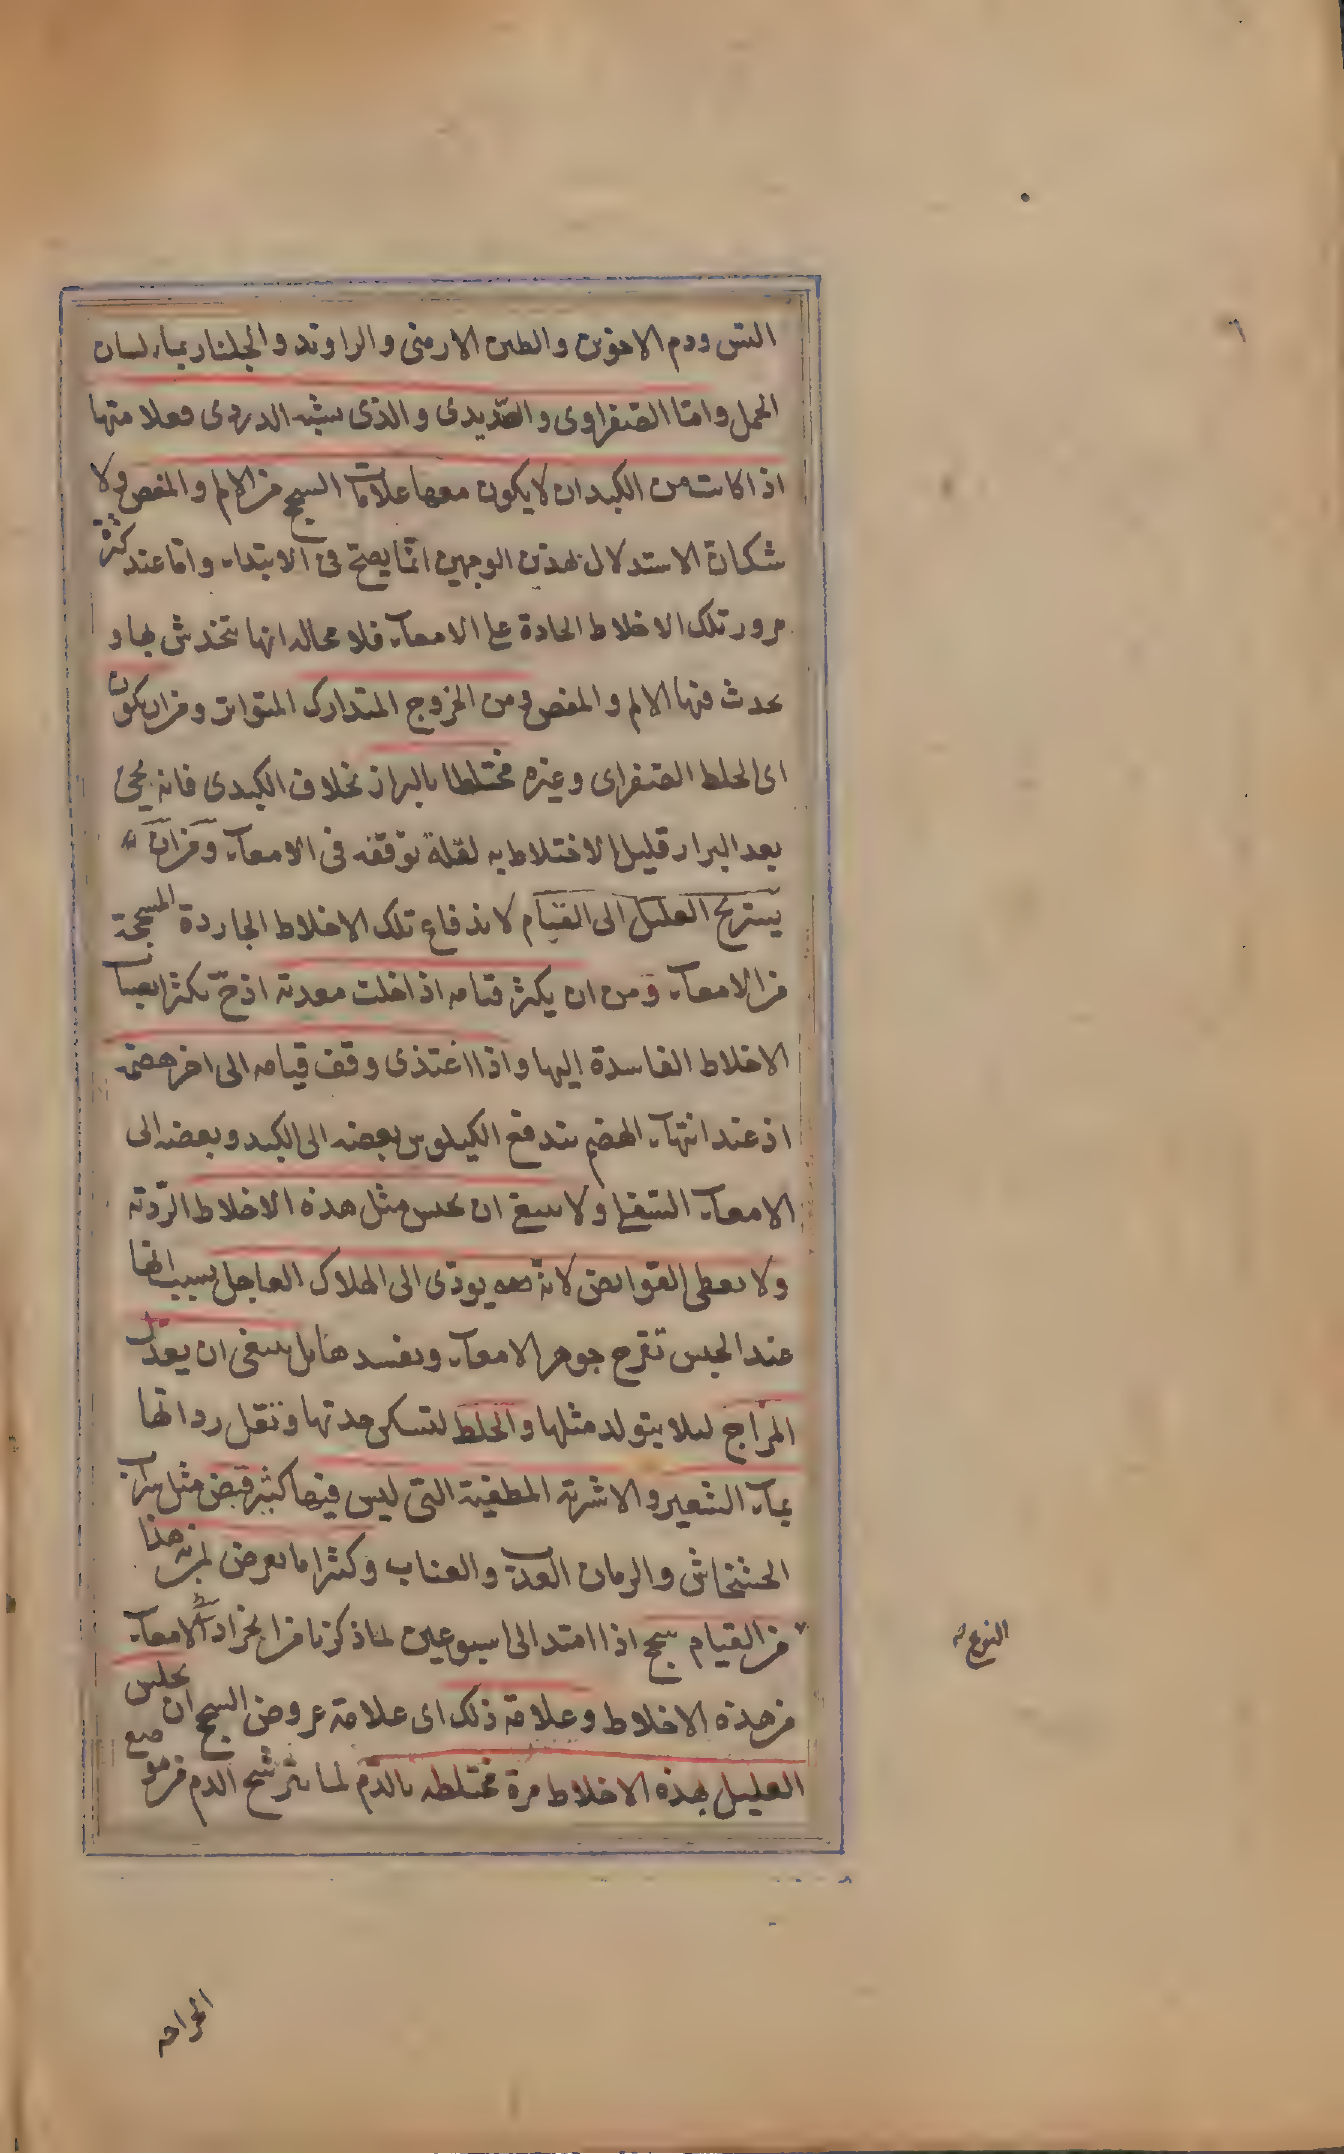 التيس ودم الاخوين والطين الارمنى والراوند والجلنار بماء لسان
الحمل واما الصفراوى والصديدى والذى يشبه الدردى فعلامتها
اذا كانت من الكبد ان لا يكون معها علامات السحج من الالم والمغص ولا
شك ان الاستدلال بهذين الوجهين انما يصح فى الابتداء واما عند كثرة
مرور تلك الاخلاط الحادة على الامعاء فلا محالة انها تتخدش بها و
يحدث فيها الالم والمغص ومن الخروج المتدارك المتواتر ومن ان يكون
اى الخلط الصفراى وغيره مختلطا بالبراز بخلاف الكبدى فانه يجئ
بعد البراز قليل الاختلاط به لقلة توقفه فى الامعاء ومن ان
يستريح العليل الى القيام لاندفاع تلك الاخلاط الجاردة المسحجة
من الامعاء ومن ان يكثر قيامه اذا خلت معدته اذ ح يكثر انصباب
الاخلاط الفاسدة اليها واذا اغتذى وقف قيامه الى اخر هضمه
اذ عند انتهاء الهضم يندفع الكيلوس بعضه الى الكبد وبعضه الى
الامعاء السفلى ولا ينبغى ان يحبس مثل هذه الاخلاط الردية
ولا يعطى القوابض لانه يودى الى الهلاك العاجل بسبب انها
عند الحبس تقرح جوهر الامعاء وتفسدها بل ينبغى ان يعدل
المزاج لئلا يتولد مثلها والخلط لتسكن حدتها وتقل رداتها
بماء الشعير والاشربة المطفية التى ليس فيها كثير قبض مثل شراب
الخشخاش والرمان العذب والعناب وكثيرا ما يعرض لمن به هذا
من القيام سحج اذا امتد الى اسبوعين لما ذكرنا من انجراد الامعاء
من هذه الاخلاط وعلامة ذلك اى علامة عروض السحج ان يجلس
العليل بهذه الاخلاط مرة مختلطه بالدم لما يترشح الدم من موضع
النوع صه
الجراحه